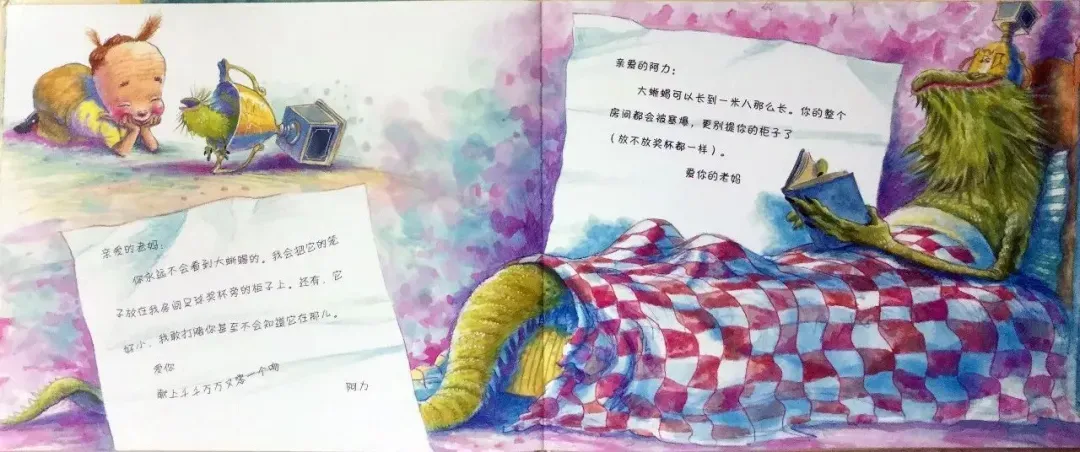 亲爱的老妈：
你永远不会看到大蜥蜴的。我会把它的笼
子放在我房间足球奖杯旁的柜子上。还有，它
好小，我敢打赌你甚至不会知道它在那儿。
爱你
献上千千万万又零一个吻
阿力
亲爱的阿力：
大蜥蜴可以长到一米八那么长。你的整个
房间都会被塞爆，更别提你的柜子了
（放不放奖杯都一样）。
爱你的老妈